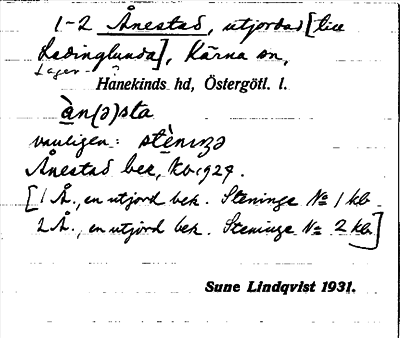 1-2 Ånestad, utjordad [till
Ladinglunda], Kärna sn,
Lager- ?
Hanekinds hd, Östergötl. l.
àn(ə)sta
vanligen: stènıŋə
Ånestad bek, Kb 1924.
[1 Å., en utjord bek. Steninge No 1 kb.
2 Å., en utjord bek. Steninge No 2 kb.]
Sune Lindqvist 1931.